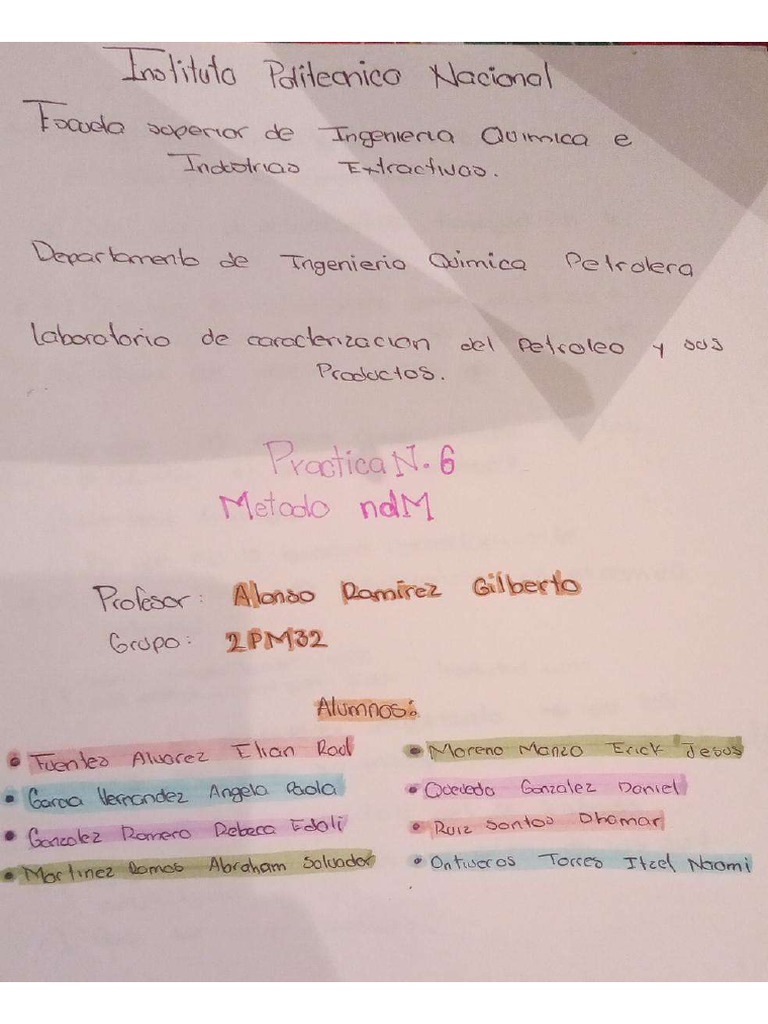 Instituto Politecnico Nacional
Escuela superior de Ingenieria Quimica e
Industrias Extractivas.
Departamento de Ingenierio Quimica Petrolera
Laboratorio de caracterizacion del Petroleo y sus
Productos.
Practica N. 6
Metodo ndM
Profesor: Alonso Ramirez Gilberto
Grupo: 2PM32
Alumnos:
• Fuentes Alvarez Elian Raul
• Garcia Hernandez Angela Paola
• Gonzalez Romero Rebeca Edali
• Martinez Ramos Abraham Salvador
• Moreno Manzo Erick Jesus
• Quevedo Gonzalez Daniel
• Ruiz Santos Dhamar
• Ontiveros Torres Itzel Naomi